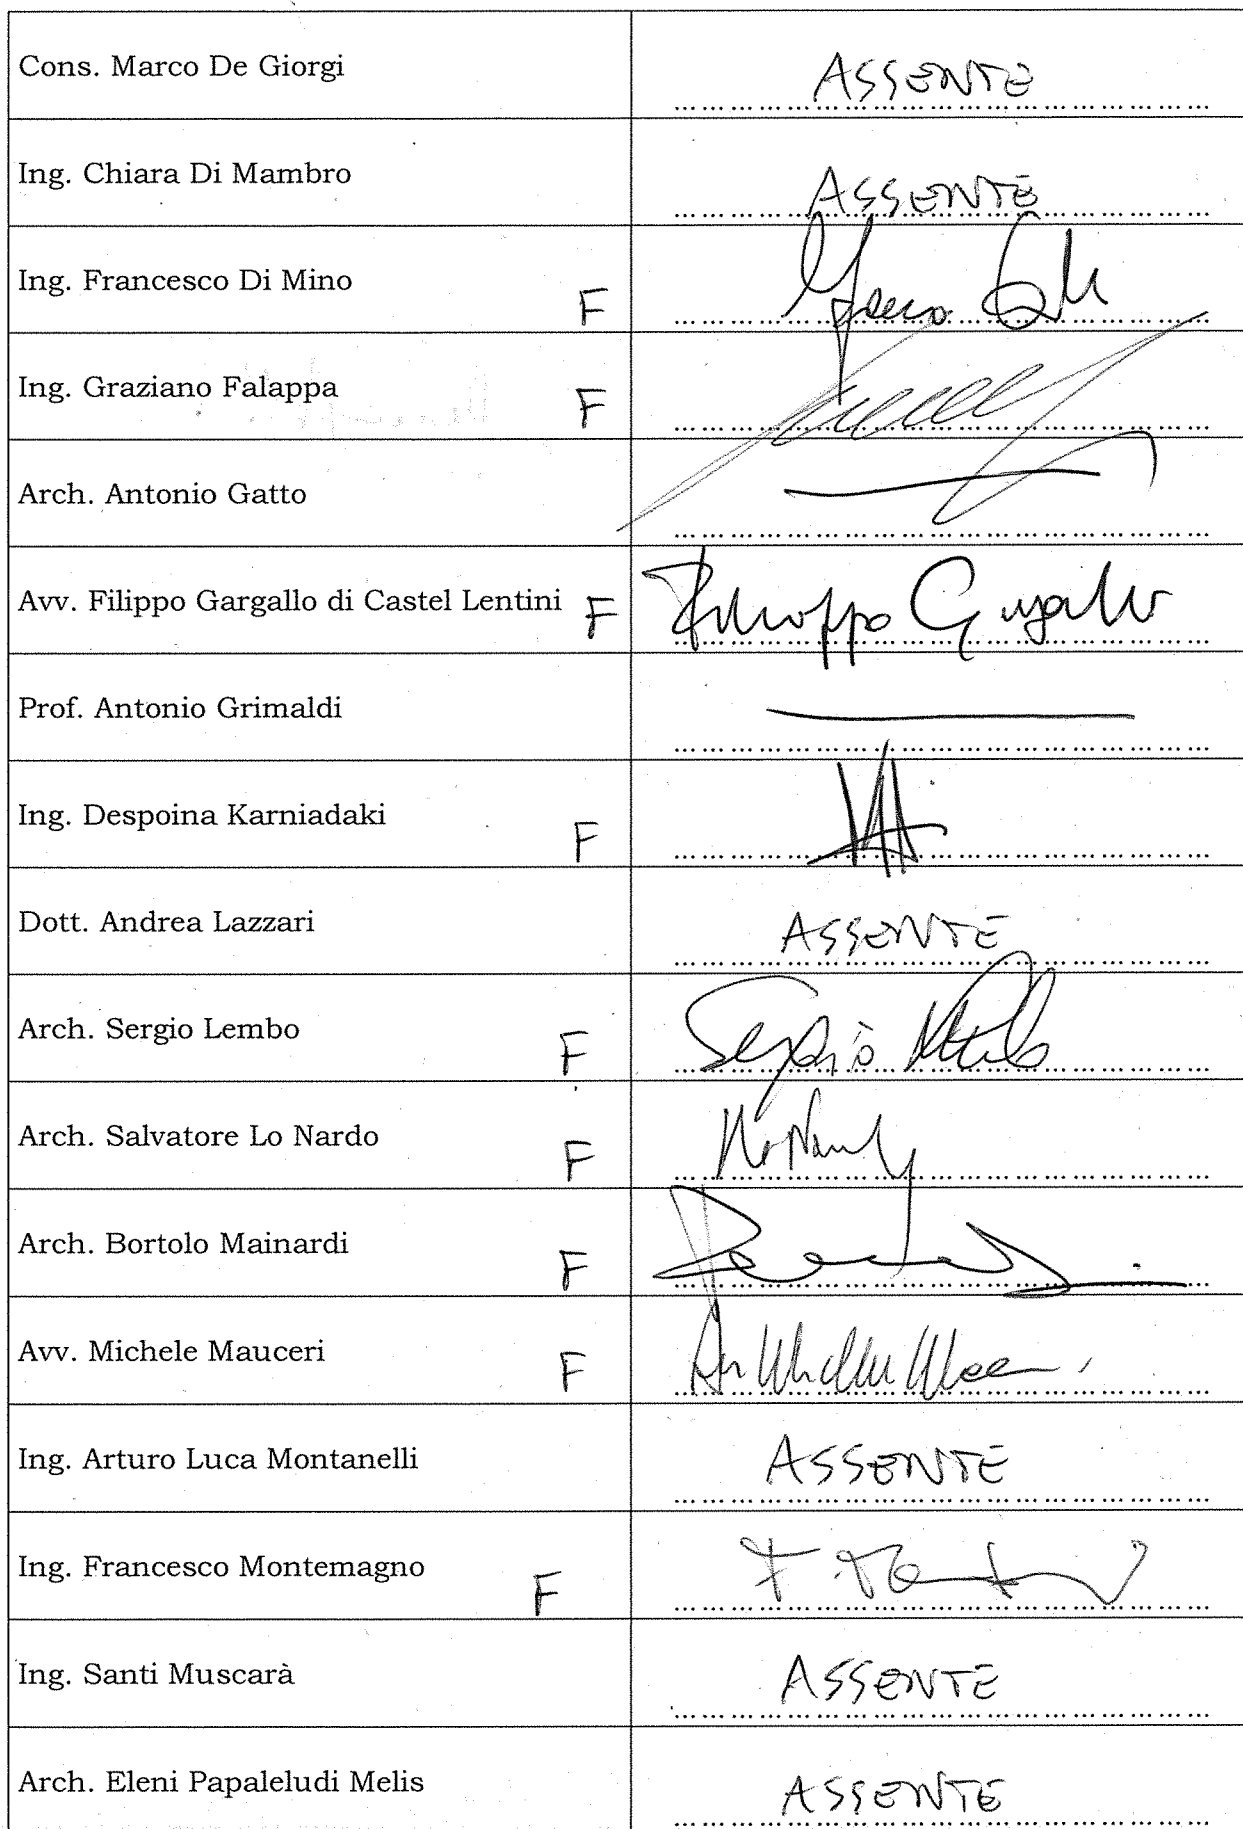 Cons. Marco De Giorgi ASSENTE
Ing. Chiara Di Mambro ASSENTE
Ing. Francesco Di Mino F
Ing. Graziano Falappa F
Arch. Antonio Gatto
Avv. Filippo Gargallo di Castel Lentini F Filippo Gargallo
Prof. Antonio Grimaldi
Ing. Despoina Karniadaki F
Dott. Andrea Lazzari ASSENTE
Arch. Sergio Lembo F Sergio
Arch. Salvatore Lo Nardo F
Arch. Bortolo Mainardi F
Avv. Michele Mauceri F
Ing. Arturo Luca Montanelli ASSENTE
Ing. Francesco Montemagno F
Ing. Santi Muscarà ASSENTE
Arch. Eleni Papaleludi Melis ASSENTE